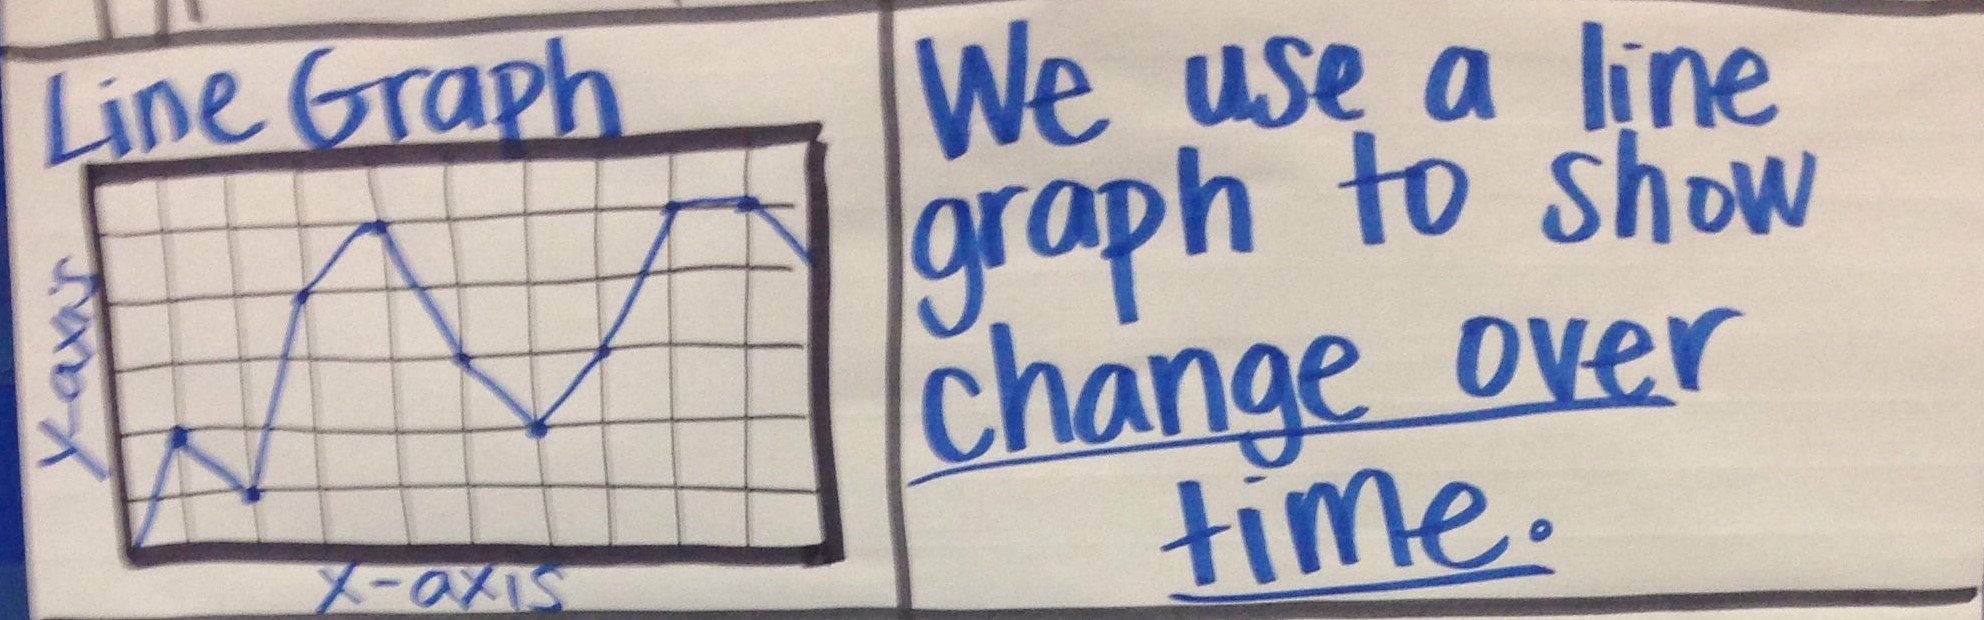 Line Graph
Y-axis
X-axis
We use a line
graph to show
change over
time.